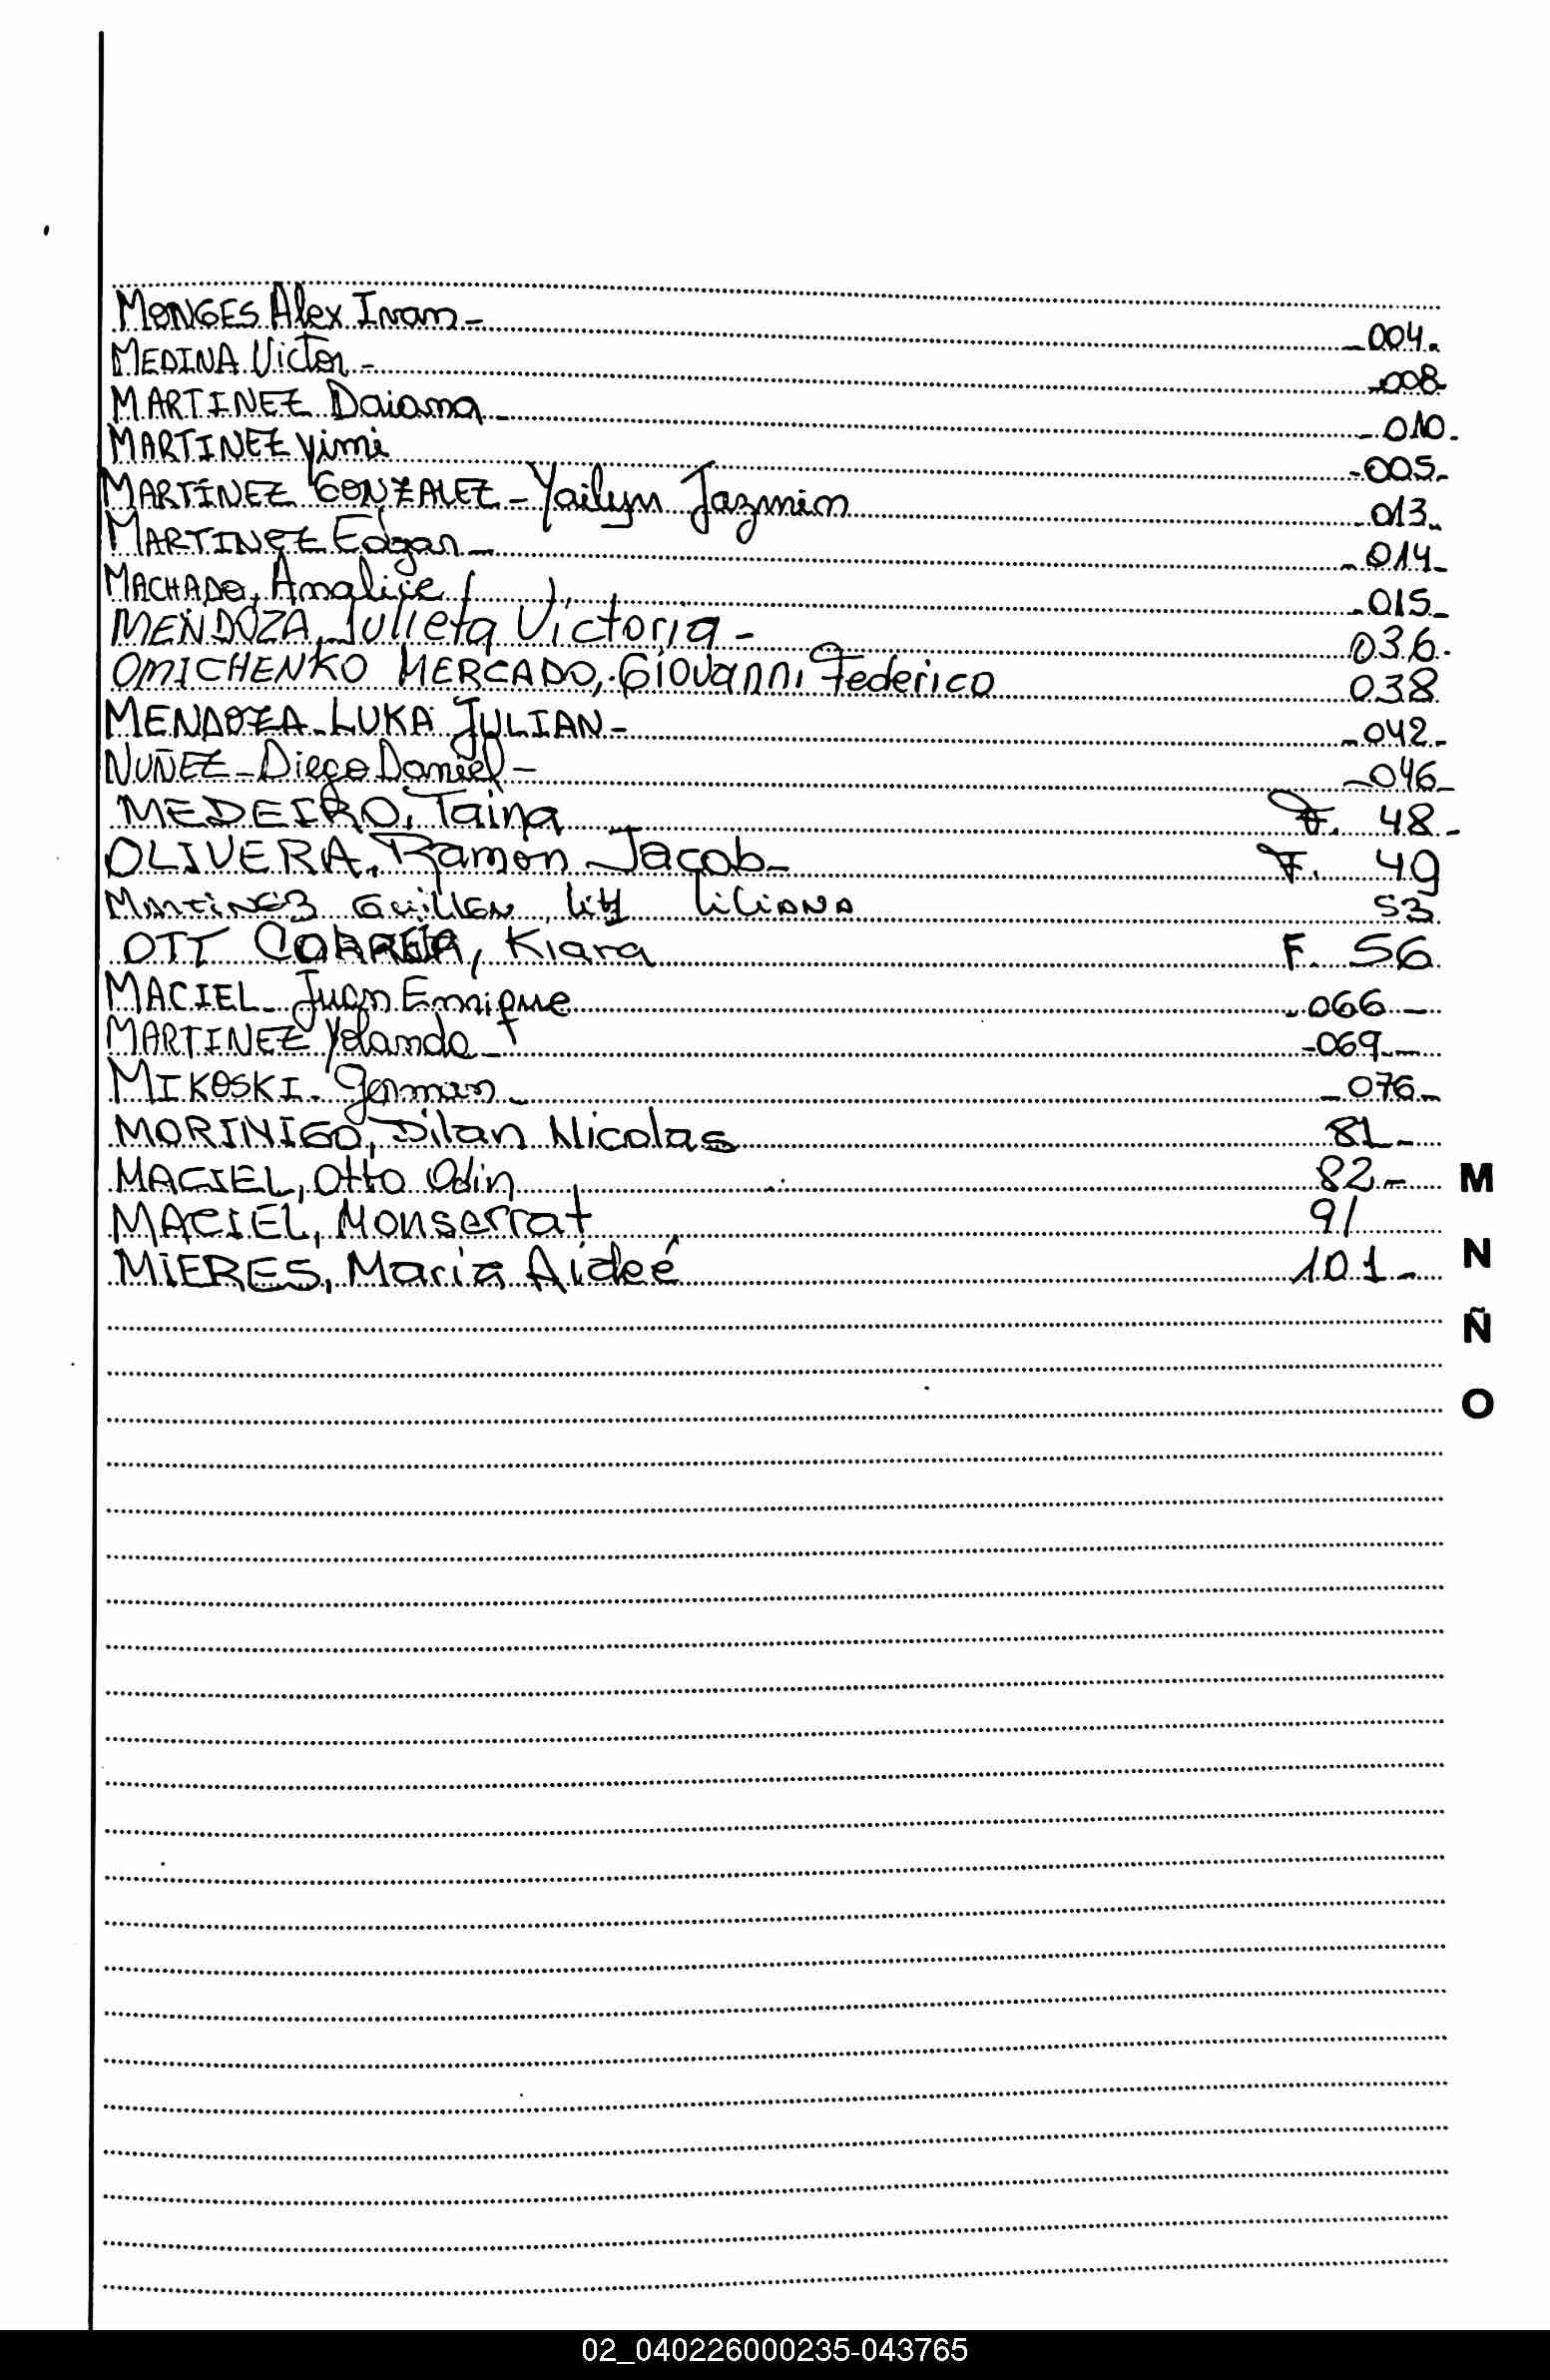 MONGES Alex Ivan - -004.
MEDINA Victor - -008-
MARTINEZ Daiana - -010.
MARTINEZ Yimi -005-
MARTINEZ GONZALEZ - Yailyn Jazmin -013-
MARTINEZ Edgar - -014-
MACHADO, Analije -015-
MENDOZA, Julieta Victoria - 036-
OMICHENKO MERCADO, Giovanni Federico 038
MENDOZA - LUKA JULIAN - -042-
NUÑEZ - Diego Daniel - -046-
MEDEIRO, Taina F. 48 -
OLIVERA, Ramon Jacob - F. 49
Martinez Guillen, Liliana 53
OTT CORREA, Kiara F. 56
MACIEL - Juan Enrique -066-
MARTINEZ Yolanda - -069-
MIKOSKI - German - -076-
MORINIGO, Dilan Nicolas 81 -
MACIEL, Otto Odin 82 -
MACIEL, Monserrat 91
MIERES, Maria Aideé 101 -
M
N
Ñ
O
02_040226000235-043765